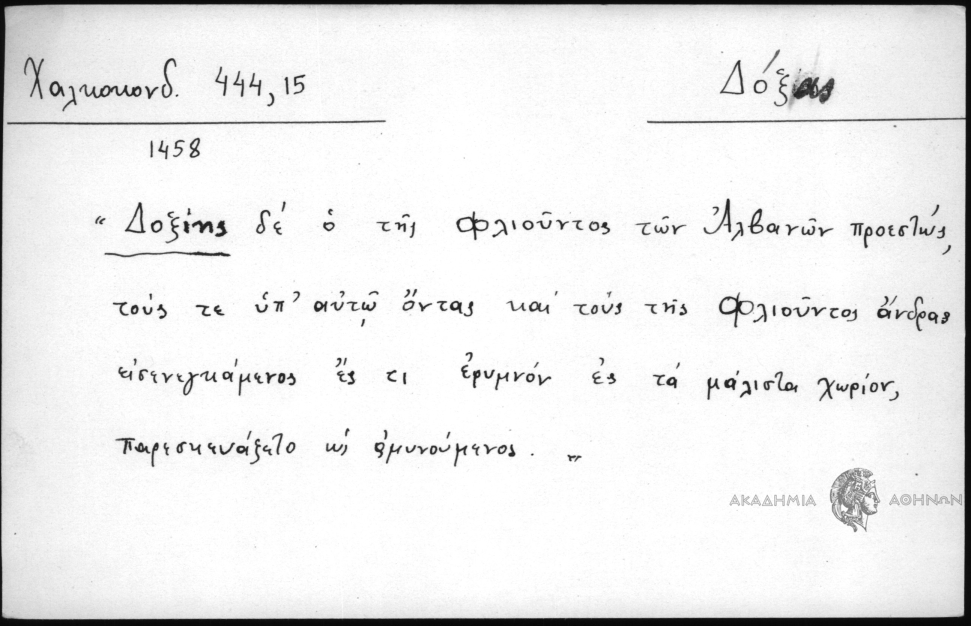 Χαλκοκονδ. 444,15
Δόξας
1458
“ Δοξίης δέ ὁ τῆς Φλιοῦντος τῶν Ἀλβανῶν προεστώς,
τούς τε ὑπ’ αὐτῷ ὄντας καί τούς τῆς Φλιοῦντος ἄνδρας
εἰσενεγκάμενος ἔς τι ἐρυμνόν ἐς τά μάλιστα χωρίον,
παρεσκευάζετο ὡς ἀμυνούμενος. „
ΑΚΑΔΗΜΙΑ ΑΘΗΝΩΝ